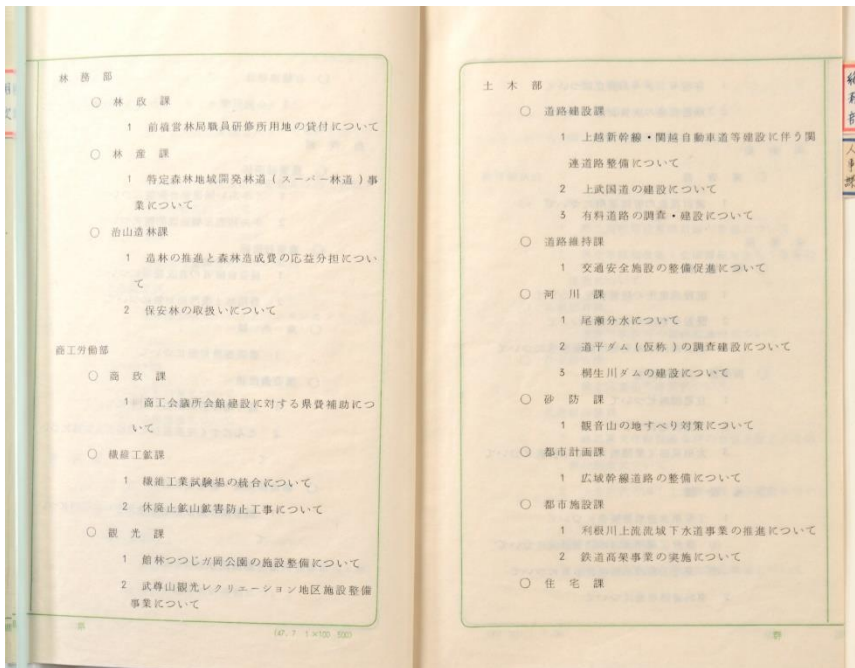 林務部
○ 林政課
1 前橋営林局職員研修所用地の貸付について
○ 林産課
1 特定森林地域開発林道(スーパー林道)事
業について
○ 治山造林課
1 造林の推進と森林造成費の応益分担につい
て
2 保安林の取扱いについて
商工労働部
○ 商政課
1 商工会議所会館建設に対する県費補助につ
いて
○ 繊維工鉱課
1 繊維工業試験場の統合について
2 休廃止鉱山鉱害防止工事について
○ 観光課
1 館林つつじガ岡公園の施設整備について
2 武尊山観光レクリエーション地区施設整備
事業について
(47.7 1×100 500)
土木部
○ 道路建設課
1 上越新幹線・関越自動車道等建設に伴う関
連道路整備について
2 上武国道の建設について
3 有料道路の調査・建設について
○ 道路維持課
1 交通安全施設の整備促進について
○ 河川課
1 尾瀬分水について
2 道平ダム(仮称)の調査建設について
3 桐生川ダムの建設について
○ 砂防課
1 観音山の地すべり対策について
○ 都市計画課
1 広域幹線道路の整備について
○ 都市施設課
1 利根川上流流域下水道事業の推進について
2 鉄道高架事業の実施について
○ 住宅課